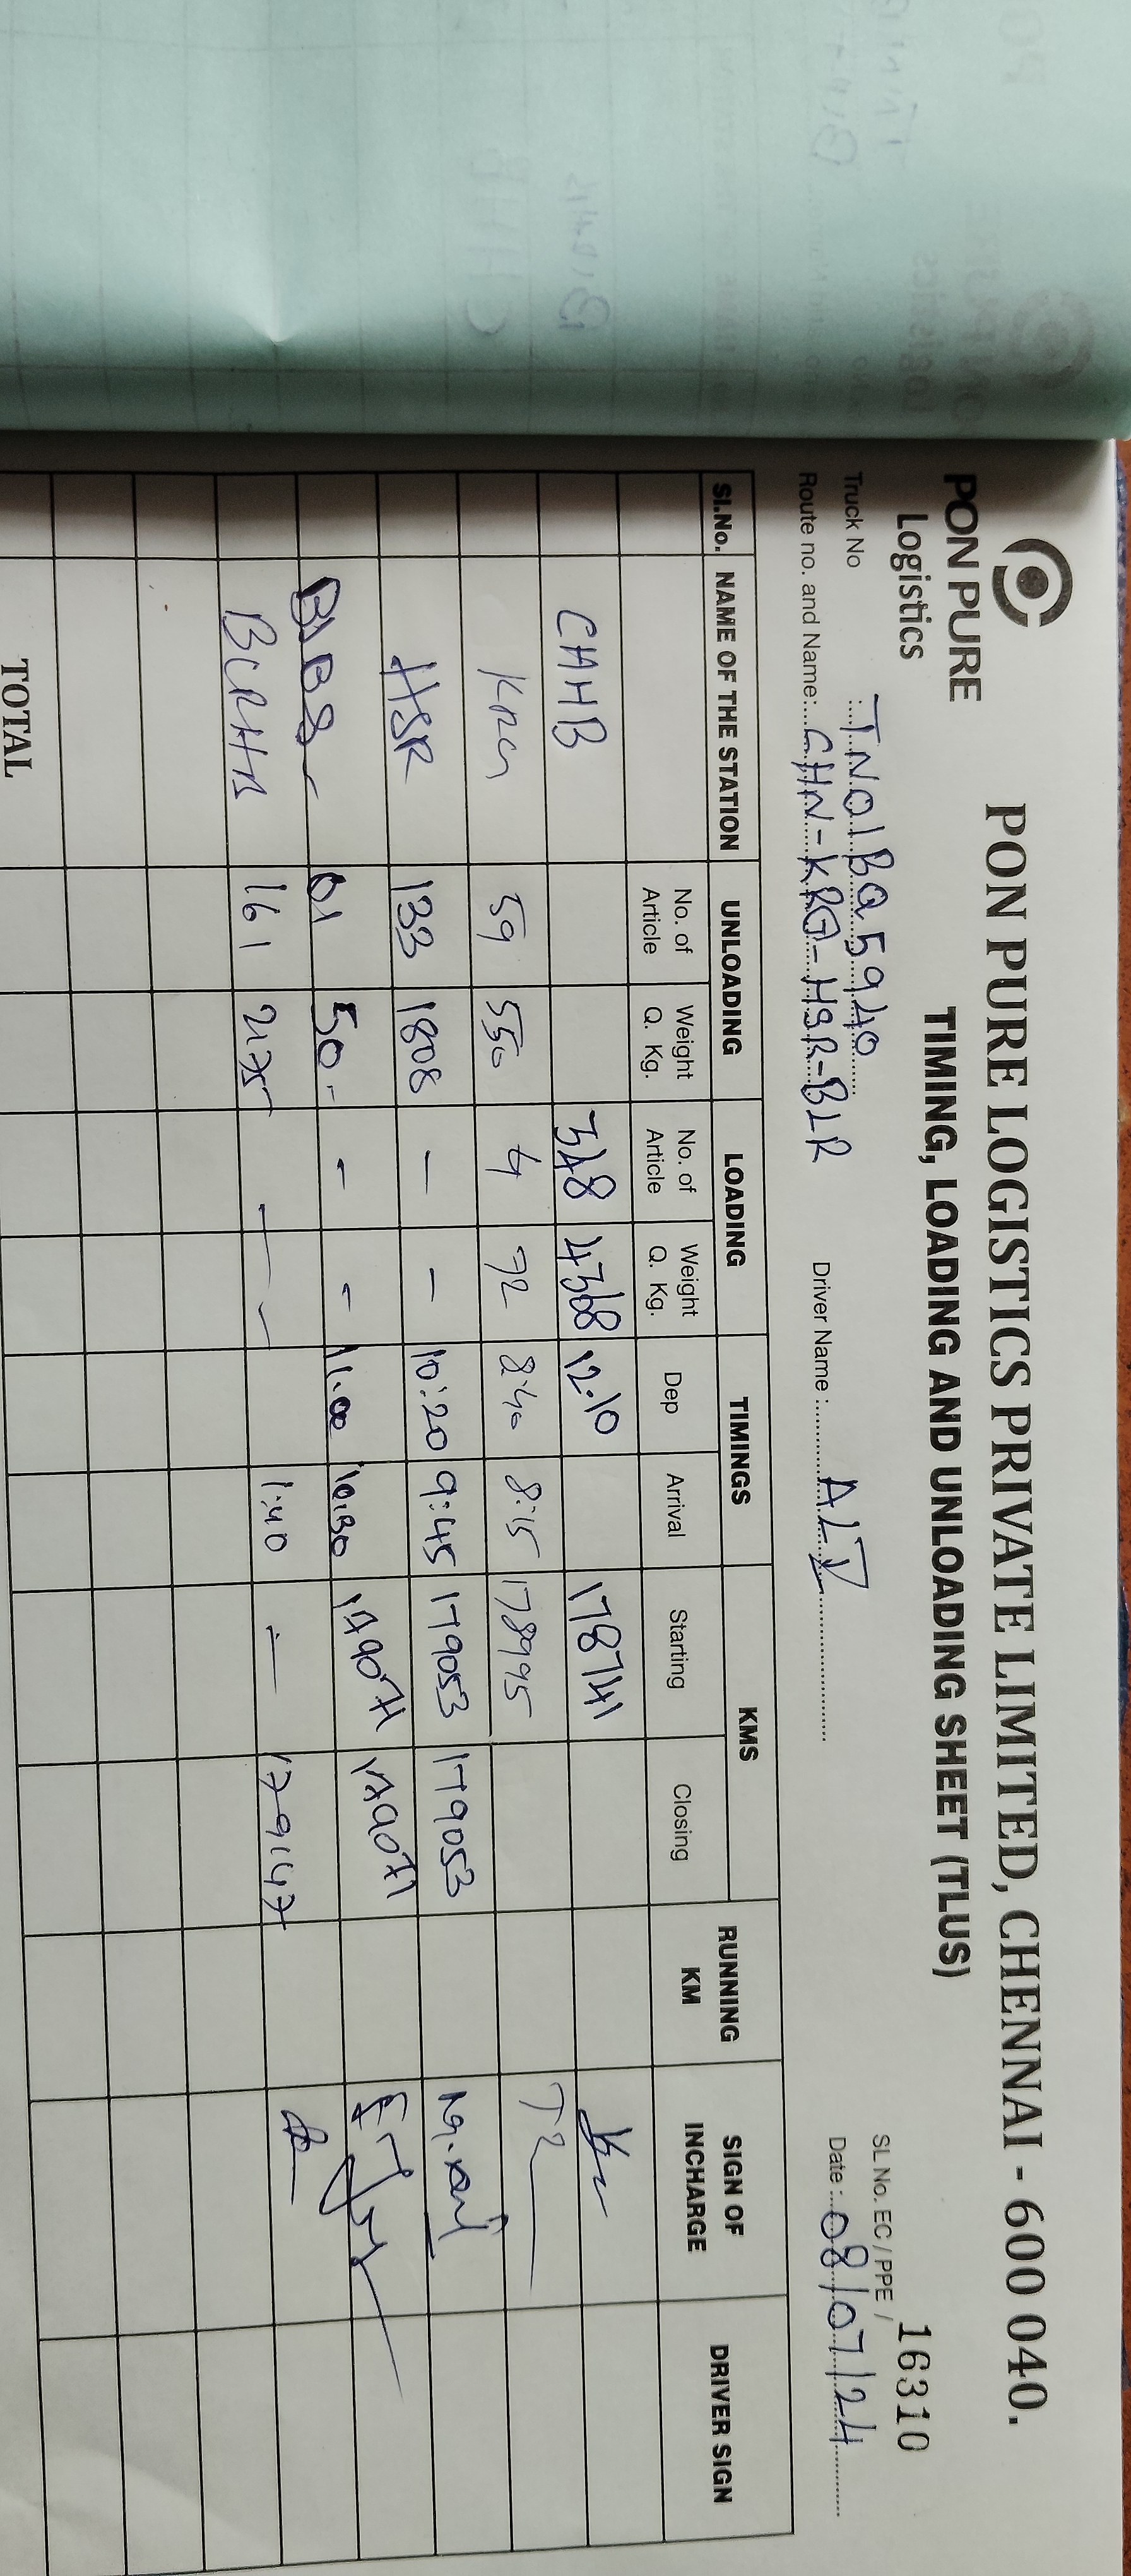 PON PURE
Logistics
PON PURE LOGISTICS PRIVATE LIMITED, CHENNAI - 600 040.
TIMING, LOADING AND UNLOADING SHEET (TLUS)
SL No. EC / PPE / 16310
Truck No : TN01BQ5940
Route no. and Name: CHN-KRG-HSR-BLR Driver Name : ALI Date : 08/07/24
Sl.No. NAME OF THE STATION UNLOADING LOADING TIMINGS KMS RUNNING KM SIGN OF INCHARGE DRIVER SIGN
No. of Article Weight Q. Kg. No. of Article Weight Q. Kg. Dep Arrival Starting Closing
CHHB 348 4368 12.10 178741
KRG 59 550 4 72 8:40 8:15 178995
HSR 133 1808 - - 10:20 9:45 179053 179053
01 50 - - 11.00 10:30 179071 179071
BCRHB 161 2175 - - 1:40 - 179147
TOTAL